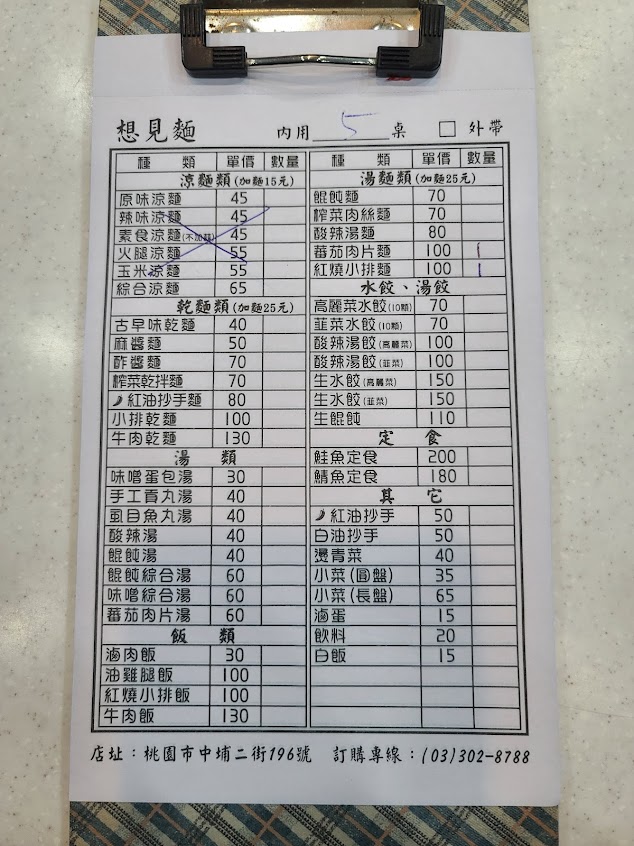 想見麵 內用 5 桌 □ 外帶
種類 單價 數量
涼麵類(加麵15元)
原味涼麵 45
辣味涼麵 45
素食涼麵 45
火腿涼麵 55
玉米涼麵 55
綜合涼麵 65
乾麵類(加麵25元)
古早味乾麵 40
麻醬麵 50
酢醬麵 70
榨菜乾拌麵 70
紅油抄手麵 80
小排乾麵 100
牛肉乾麵 130
湯類
味噌蛋包湯 30
手工貢丸湯 40
虱目魚丸湯 40
酸辣湯 40
餛飩湯 40
餛飩綜合湯 60
味噌綜合湯 60
蕃茄肉片湯 60
飯類
滷肉飯 30
油雞腿飯 100
紅燒小排飯 100
牛肉飯 130
種類 單價 數量
湯麵類(加麵25元)
餛飩麵 70
榨菜肉絲麵 70
酸辣湯麵 80
蕃茄肉片麵 100 1
紅燒小排麵 100 1
水餃、湯餃
高麗菜水餃(10顆) 70
韮菜水餃(10顆) 70
酸辣湯餃(高麗菜) 100
酸辣湯餃(韮菜) 100
生水餃(高麗菜) 150
生水餃(韮菜) 150
生餛飩 110
定食
鮭魚定食 200
鯖魚定食 180
其它
紅油抄手 50
白油抄手 50
燙青菜 40
小菜(圓盤) 35
小菜(長盤) 65
滷蛋 15
飲料 20
白飯 15
店址:桃園市中埔二街196號 訂購專線:(03)302-8788